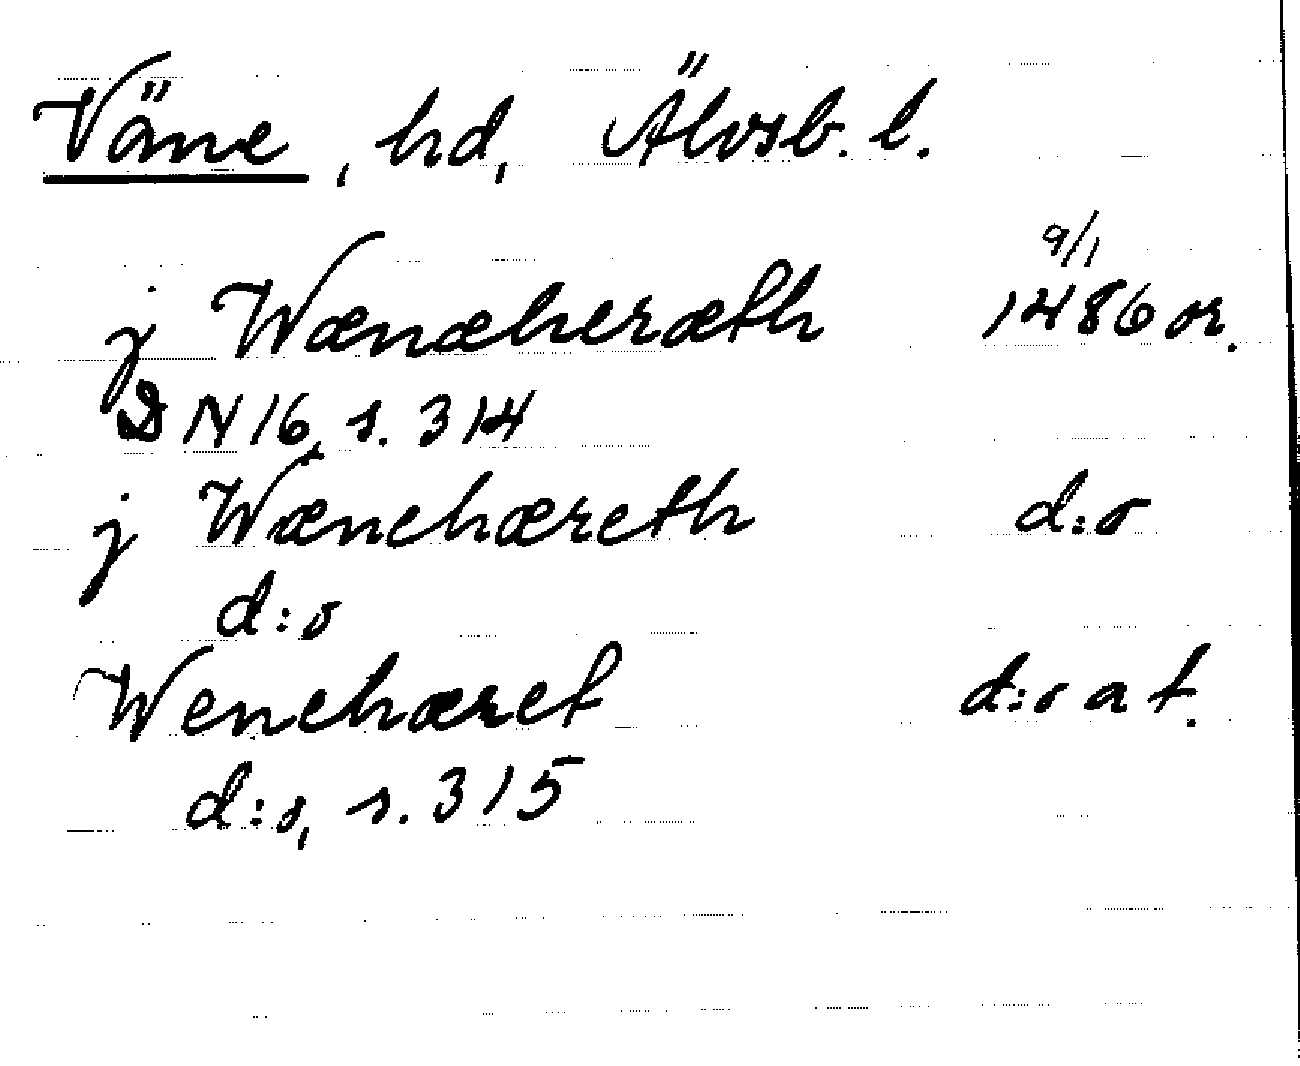 Väne, hd, Älvsb. l.
9/1
j Wænæheræth 1486 or.
DN 16, s. 314
j Wænehæreth d:o
d:o
Wenehæret d:o at.
d:o, s. 315